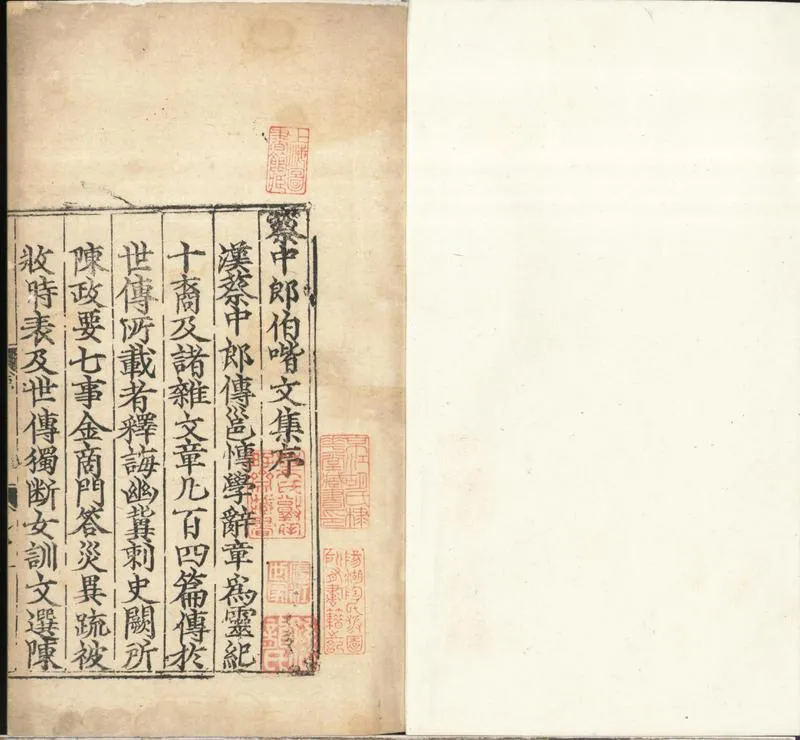 蔡中郎伯喈文集序
漢蔡中郎傳邕愽學辭章爲靈紀
十裔及諸雜文章凡百四篇傳於
世傳所載者釋誨幽冀刺史闕所
陳政要七事金商門答災異疏被
收時表及世傳獨断女訓文選陳
上海圖
書館藏